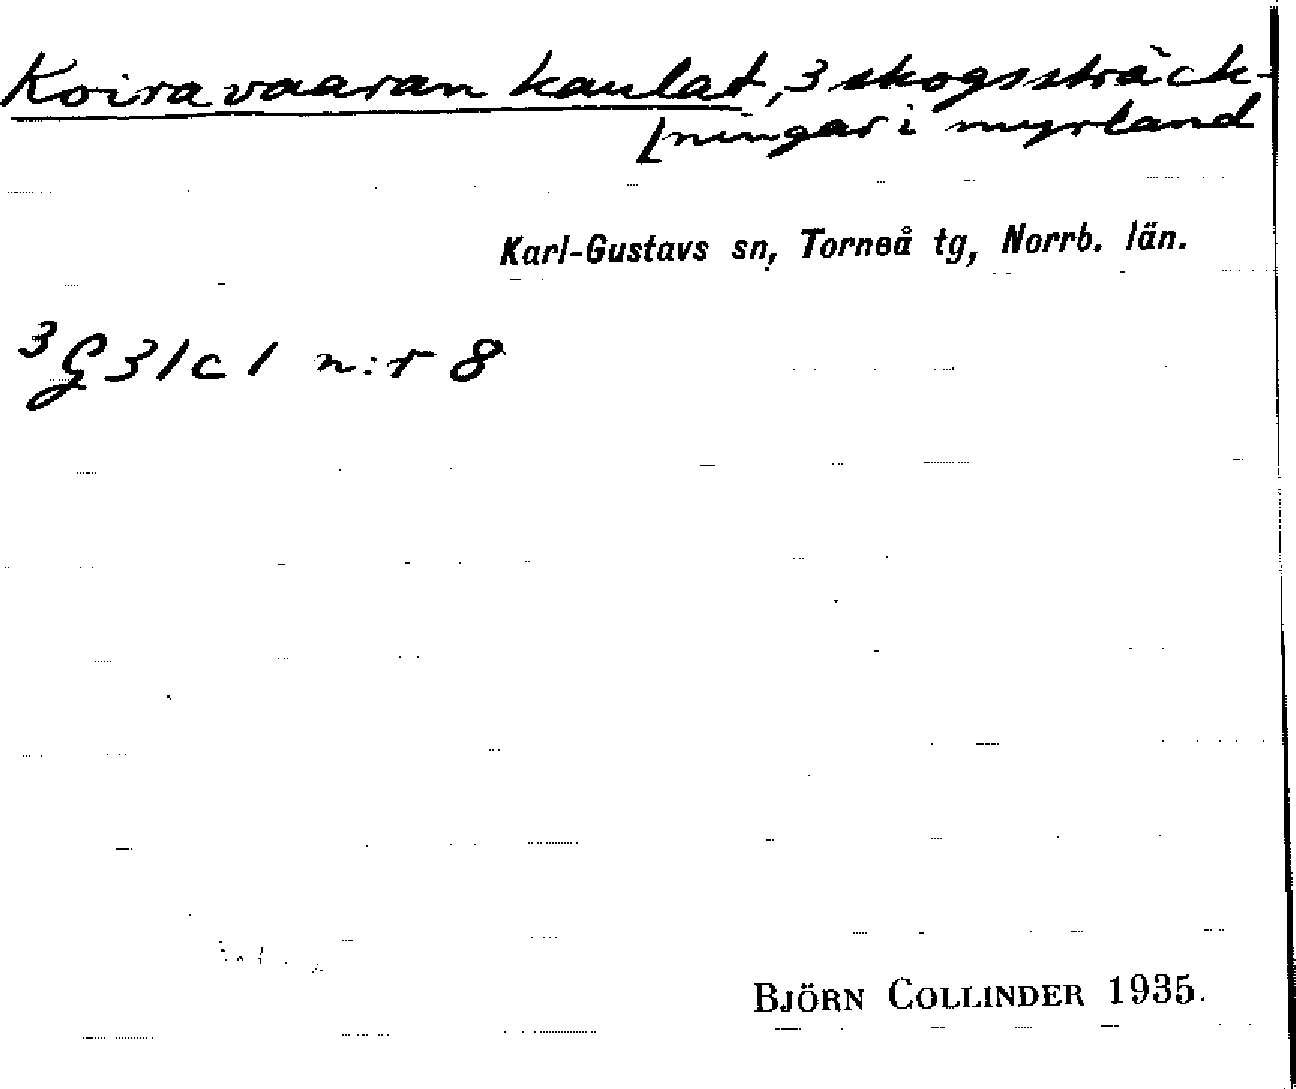 Koiravaaran kaulat, 3 skogssträck-
[ningar i myrland
Karl-Gustavs sn, Torneå tg, Norrb. län.
³G31c1 n:r 8
BJÖRN COLLINDER 1935.